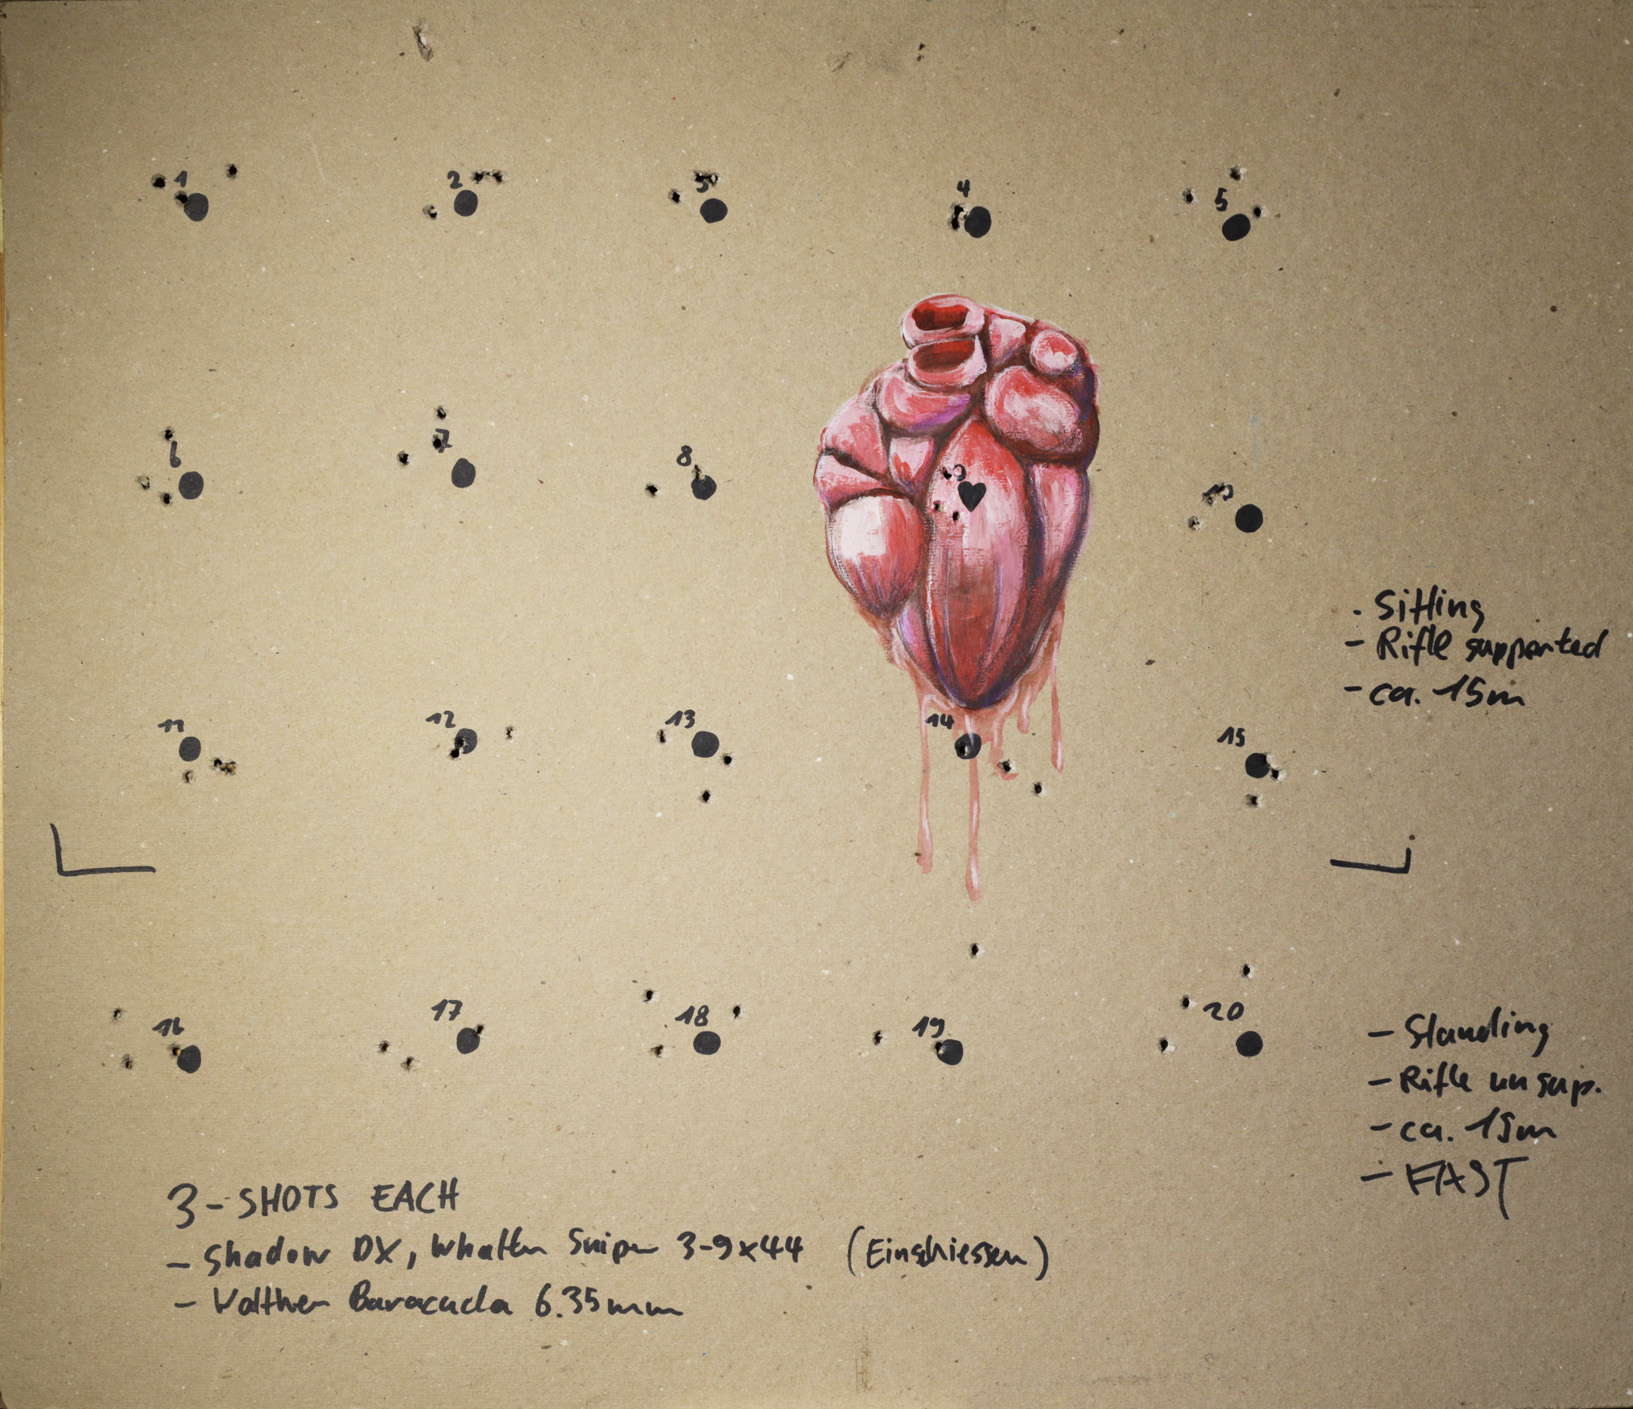 1 2 3 4 5
6 7 8 9 10
11 12 13 14 15
- Sitting
- Rifle supported
- ca. 15m
16 17 18 19 20
- Standing
- Rifle unsup.
- ca. 15m
- FAST
3-SHOTS EACH
- Shadow DX, Sniper 3-9x44 (Einschiessen)
- Walther Baracuda 6.35mm